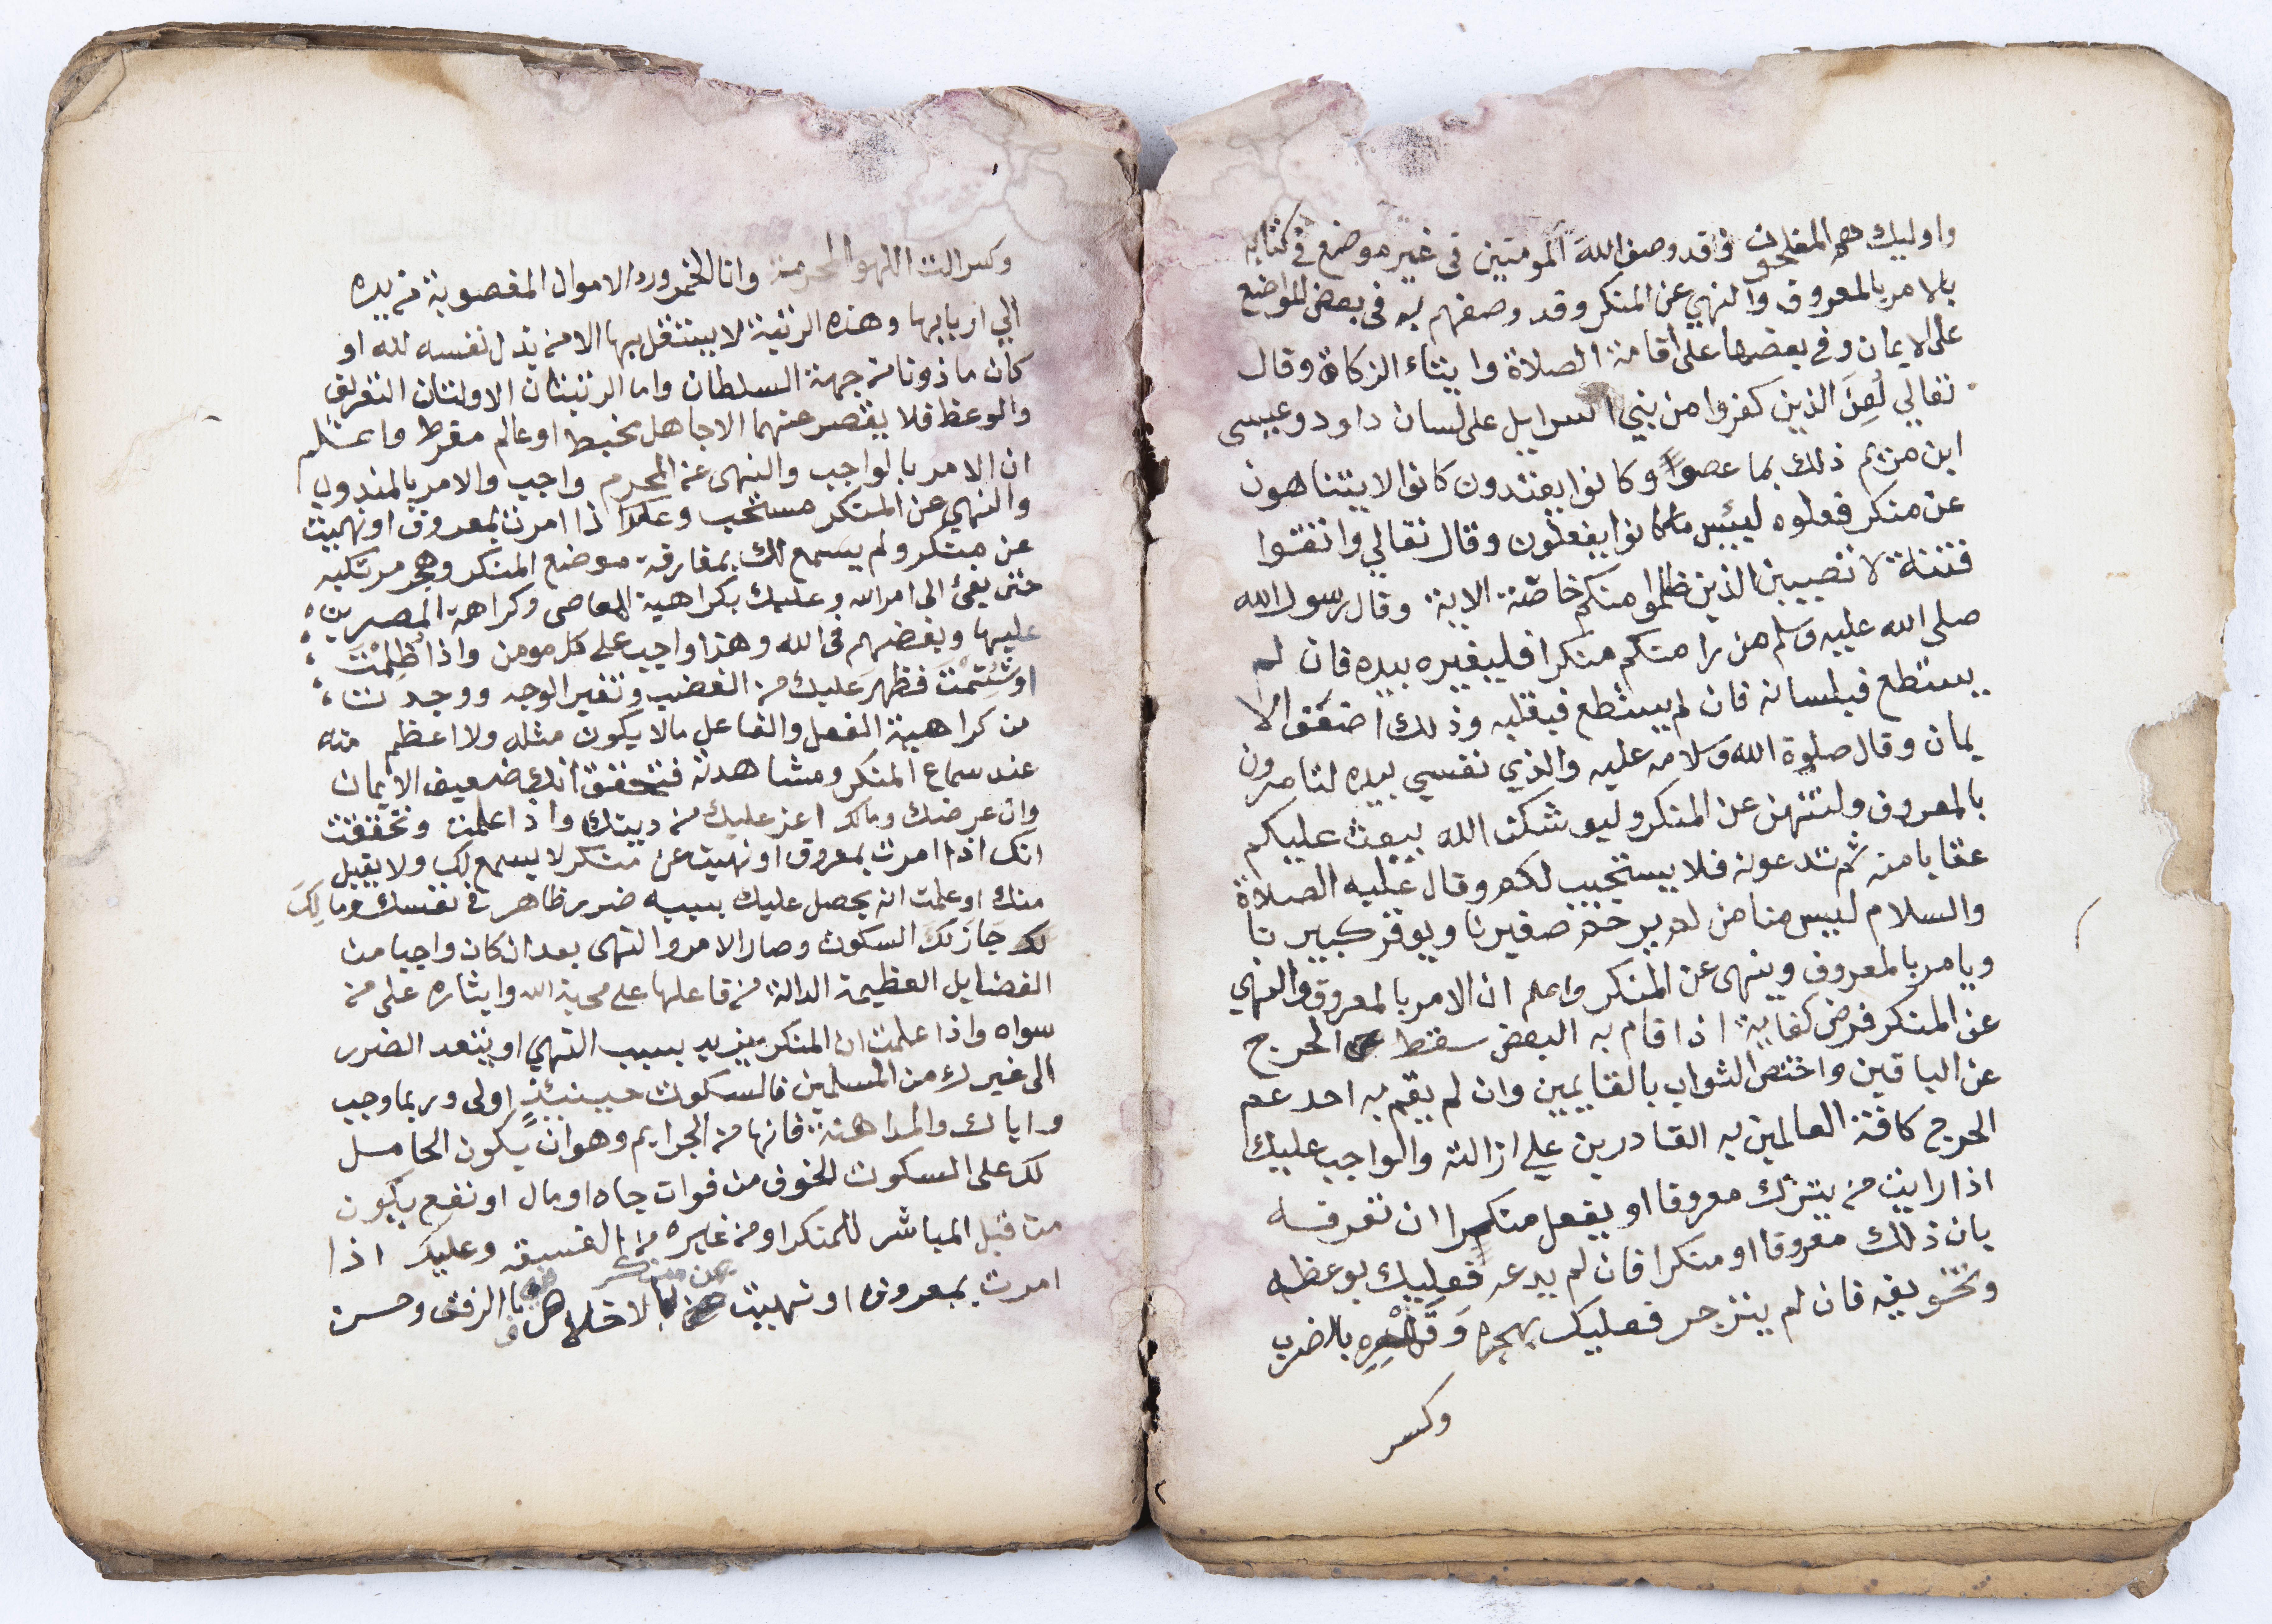 واوليك هم المفلحون فاقد وصف الله المومنين في غير موضع في كتابه
بالامر بالمعروف والنهي عن المنكر وقد وصفهم به في بعض المواضع
على الايمان وفي بعضها على اقامة الصلاة وايتاء الزكاة وقال
تعالي لُعِنَ الذين كفروا من بني اسرايل على لسان داود وعيسى
ابن مريم ذلك بما عصوا وكانوا يعتدون كانوا لا يتناهون
عن منكر فعلوه لبئس ما كانوا يفعلون وقال تعالي واتقوا
فتنة لا تصيبن الذين ظلموا منكم خاصّة الاية وقال رسول الله
صلى الله عليه وسلم من را منكم منكرا فليغيره بيده فان لم
يستطع فبلسانه فان لم يستطع فبقلبه وذلك اضعف الا
يمان وقال صلوة الله وسلامه عليه والذي نفسي بيده لتامرون
بالمعروف ولتنهن عن المنكر وليوشكن الله يبعث عليكم
عقابا منه ثم تدعونه فلا يستجيب لكم وقال عليه الصلاة
والسلام ليس منا من لم يرحم صغيرنا ويوقر كبيرنا
ويامر بالمعروف وينهى عن المنكر واعلم ان الامر بالمعروف والنهي
عن المنكر فرض كفاية اذا قام به البعض سقط الحرج
عن الباقين واختص الثواب بالقايمين وان لم يقم به احد عم
الحرج كافة العالمين به القادرين علي ازالته والواجب عليك
اذا رايت من يترك معروفا او يفعل منكرا ان تعرفه
بان ذلك معروفا او منكرا فان لم يدعه فعليك بوعظه
وتخويفه فان لم ينزجر فعليك بهجره وَقَهْرِهِ بالضرب
وكسر
وكسر الت اللهو المحرمة وانا الخمر ورد الاموال المغصوبة من يده
الي اربابها وهذه الرتبة لا يستقل بها الا من بذل نفسه لله او
كان ماذونا من جهة السلطان واما الرتبتان الاولتان التعريف
والوعظ فلا يقصر عنهما الا جاهل مخبط او عالم مفرط واعلم
ان الامر بالواجب والنهى عن المحرم واجب والامر بالمندوب
والنهي عن المنكر مستحب وعليك اذا امرت بمعروف او نهيت
عن منكر ولم يسمع لك بمفارقة موضع المنكر وهجر مرتكبه
حتى يفئ الى امر الله وعليك بكراهية المعاصى وكراهة المصرين
عليها وبغضهم في الله وهذا واجب على كل مومن واذا ظُلِمْتَ
او شُتِمْتَ فظهر عليك من الغضب وتغير الوجه ووجدت
من كراهية الفعل والفاعل مالا يكون مثله ولا اعظم منه
عند سماع المنكر ومشاهدته فتحقق انك ضعيف الايمان
وان عرضك ومالك اعز عليك من دينك واذا علمت وتحققت
انك اذا امرت بمعروف او نهيت عن منكر لا يسمع لك ولا يقبل
منك او علمت انه يحصل عليك بسببه ضرر ظاهر في نفسك ومالِكَ
لك جَازَ لَكَ السكوت وصار الامر والنهى بعد ان كان واجبا من
الفضايل العظيمة الدالة من فاعلها على محبة الله وايثاره على من
سواه واذا علمت ان المنكر يزيد بسبب النهي او يتعد الضرر
الى غيرك من المسلمين فالسكوت حينئذٍ اولى وربما وجب
واياك والمداهنة فانها من الجرايم وهو ان يكون الحامل
لك على السكوت الخوف من فوات جاه او مال او نفع يكون
من قبل المباشر للمنكر او من غيره من الفسقه وعليك اذا
امرت بمعروف او نهيت عن منكر بالاخلاص بالرفق وحسن